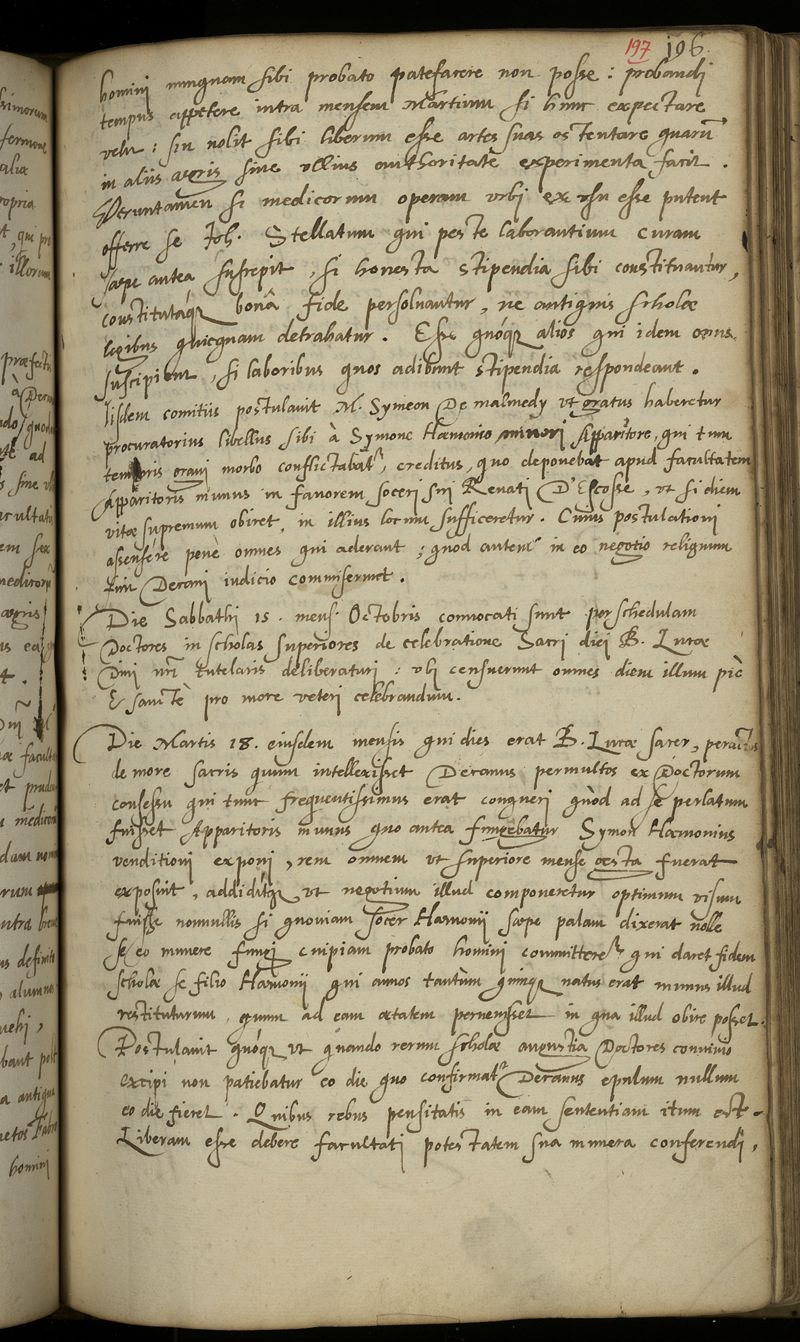 197 196
homini nunquam sibi probato patefacere non posse : probandi
tempus appetere intra mensem Martium si hunc expectare
velit : sin nolit sibi liberum esse artes suas ostentare quarū
in aliis agris sine ullius authoritate experimenta facit .
Veruntamen si medicorum operam urbi ex usu esse putent
offerre se Joh. Stellatum qui peste laborantium curam
sæpe antea suscepit , si honesta stipendia sibi constituantur,
constitutáq; bonâ fide persolvantur , ne antiquis scholæ
legibus quicquam detrahatur . Esse quóq; alios qui idem onus
suscipient , si laboribus quos adibunt stipendia respondeant .
Iisdem comitiis postulavit M. Symeon De malmedy ut gratus haberetur
procuratorius libellus sibi à Symone Hæmonio minori Apparitore, qui tum
temporis gravi morbo conflictabatr, creditus, quo deponebat apud facultatem
Apparitoris munus in favorem soceri sui Renati D'Escosse , ut si diem
vitæ supremum obiret, in illius locum sufficeretur . Cuius postulationi
assensere penè omnes qui aderant ; quod autem in eo negotio reliquum
Decani iudicio commiserunt .
Die Sabbathi 15 . mens. Octobris convocati sunt per schedulam
Doctores in scholas superiores de celebratione Sacri diei B. Lucæ
Divi nri tutelaris deliberaturi : ubi censuerunt omnes diem illum piè
& sanctè pro more veteri celebrandum .
Die Martis 18. eiusdem mensis qui dies erat B. Lucæ sacer, peractis
de more sacris quum intellexisset Decanus permultos ex Doctorum
consessu qui tunc frequentissimus erat conqueri quòd ad se perlatum
fuisset Apparitoris munus quo antea fungebatur Symon Hæmonius
venditioni exponi , rem omnem ut superiore mense gesta fuerat
exposuit , addiditq; ut negotium illud componeretur optimum visum
fuisse nonnullis si quoniam socer Hæmonii sæpe palam dixerat nolle
se eo munere fungi cuipiam probato homini committeretr qui daret fidem
scholæ se filio Hæmonii qui annos tantùm quinq; natus erat munus illud
restituturum , quum ad eam ætatem pervenisset in qua illud obire posset .
Postulavit quóq; ut quando rerum scholæ angustia Doctores convivio
excipi non patiebatur eo die quo confirmatr Decanus epulum nullum
eo die fieret . Quibus rebus pensitatis in eam sententiam itum est .
Liberam esse debere facultati potestatem sua munera conferendi ,